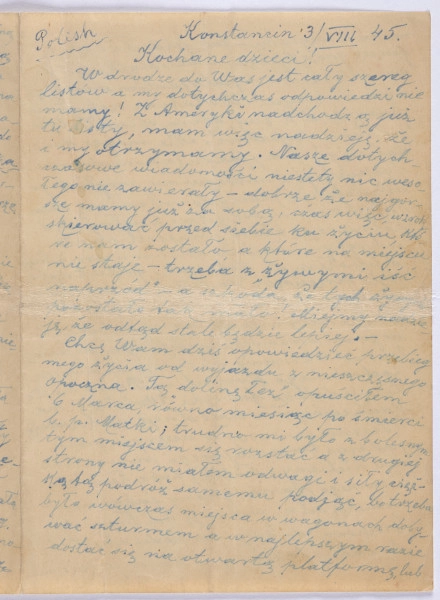 Polish
Konstancin 3/VIII 45.
Kochane dzieci!
W drodze do Was jest cały szereg
listów a my dotychczas odpowiedzi nie
mamy! Z Ameryki nadchodzą już
tu listy, mam więc nadzieję, że
i my otrzymamy. Nasze dotych
czasowe wiadomości niestety nic weso
łego nie zawierały – dobrze że najgor
sze mamy już za sobą, czas więc wzrok
skierować przed siebie ku życiu któ
re nam zostało a które na miejscu
nie staje – trzeba z żywymi iść
naprzód" – a szkoda, że tych żywych
pozostało tak mało! Miejmy nadzie
ję, że odtąd stale będzie lepiej. –
Chcę Wam dziś opowiedzieć przebieg
mego życia od wyjazdu z nieszczęsnego
Opoczna. Tą dolinę łez opuściłem
6 Marca, równo miesiąc po śmierci
b. p. Matki; trudno mi było z bolesnym
tym miejscem się rozstać a z drugiej
strony nie miałem odwagi i siły cięż
ką tą podróż samemu podjąć, bo trzeba
było wówczas miejsca w wagonach doby
wać szturmem a w najlepszym razie
dostać się na otwartą platformę, lub